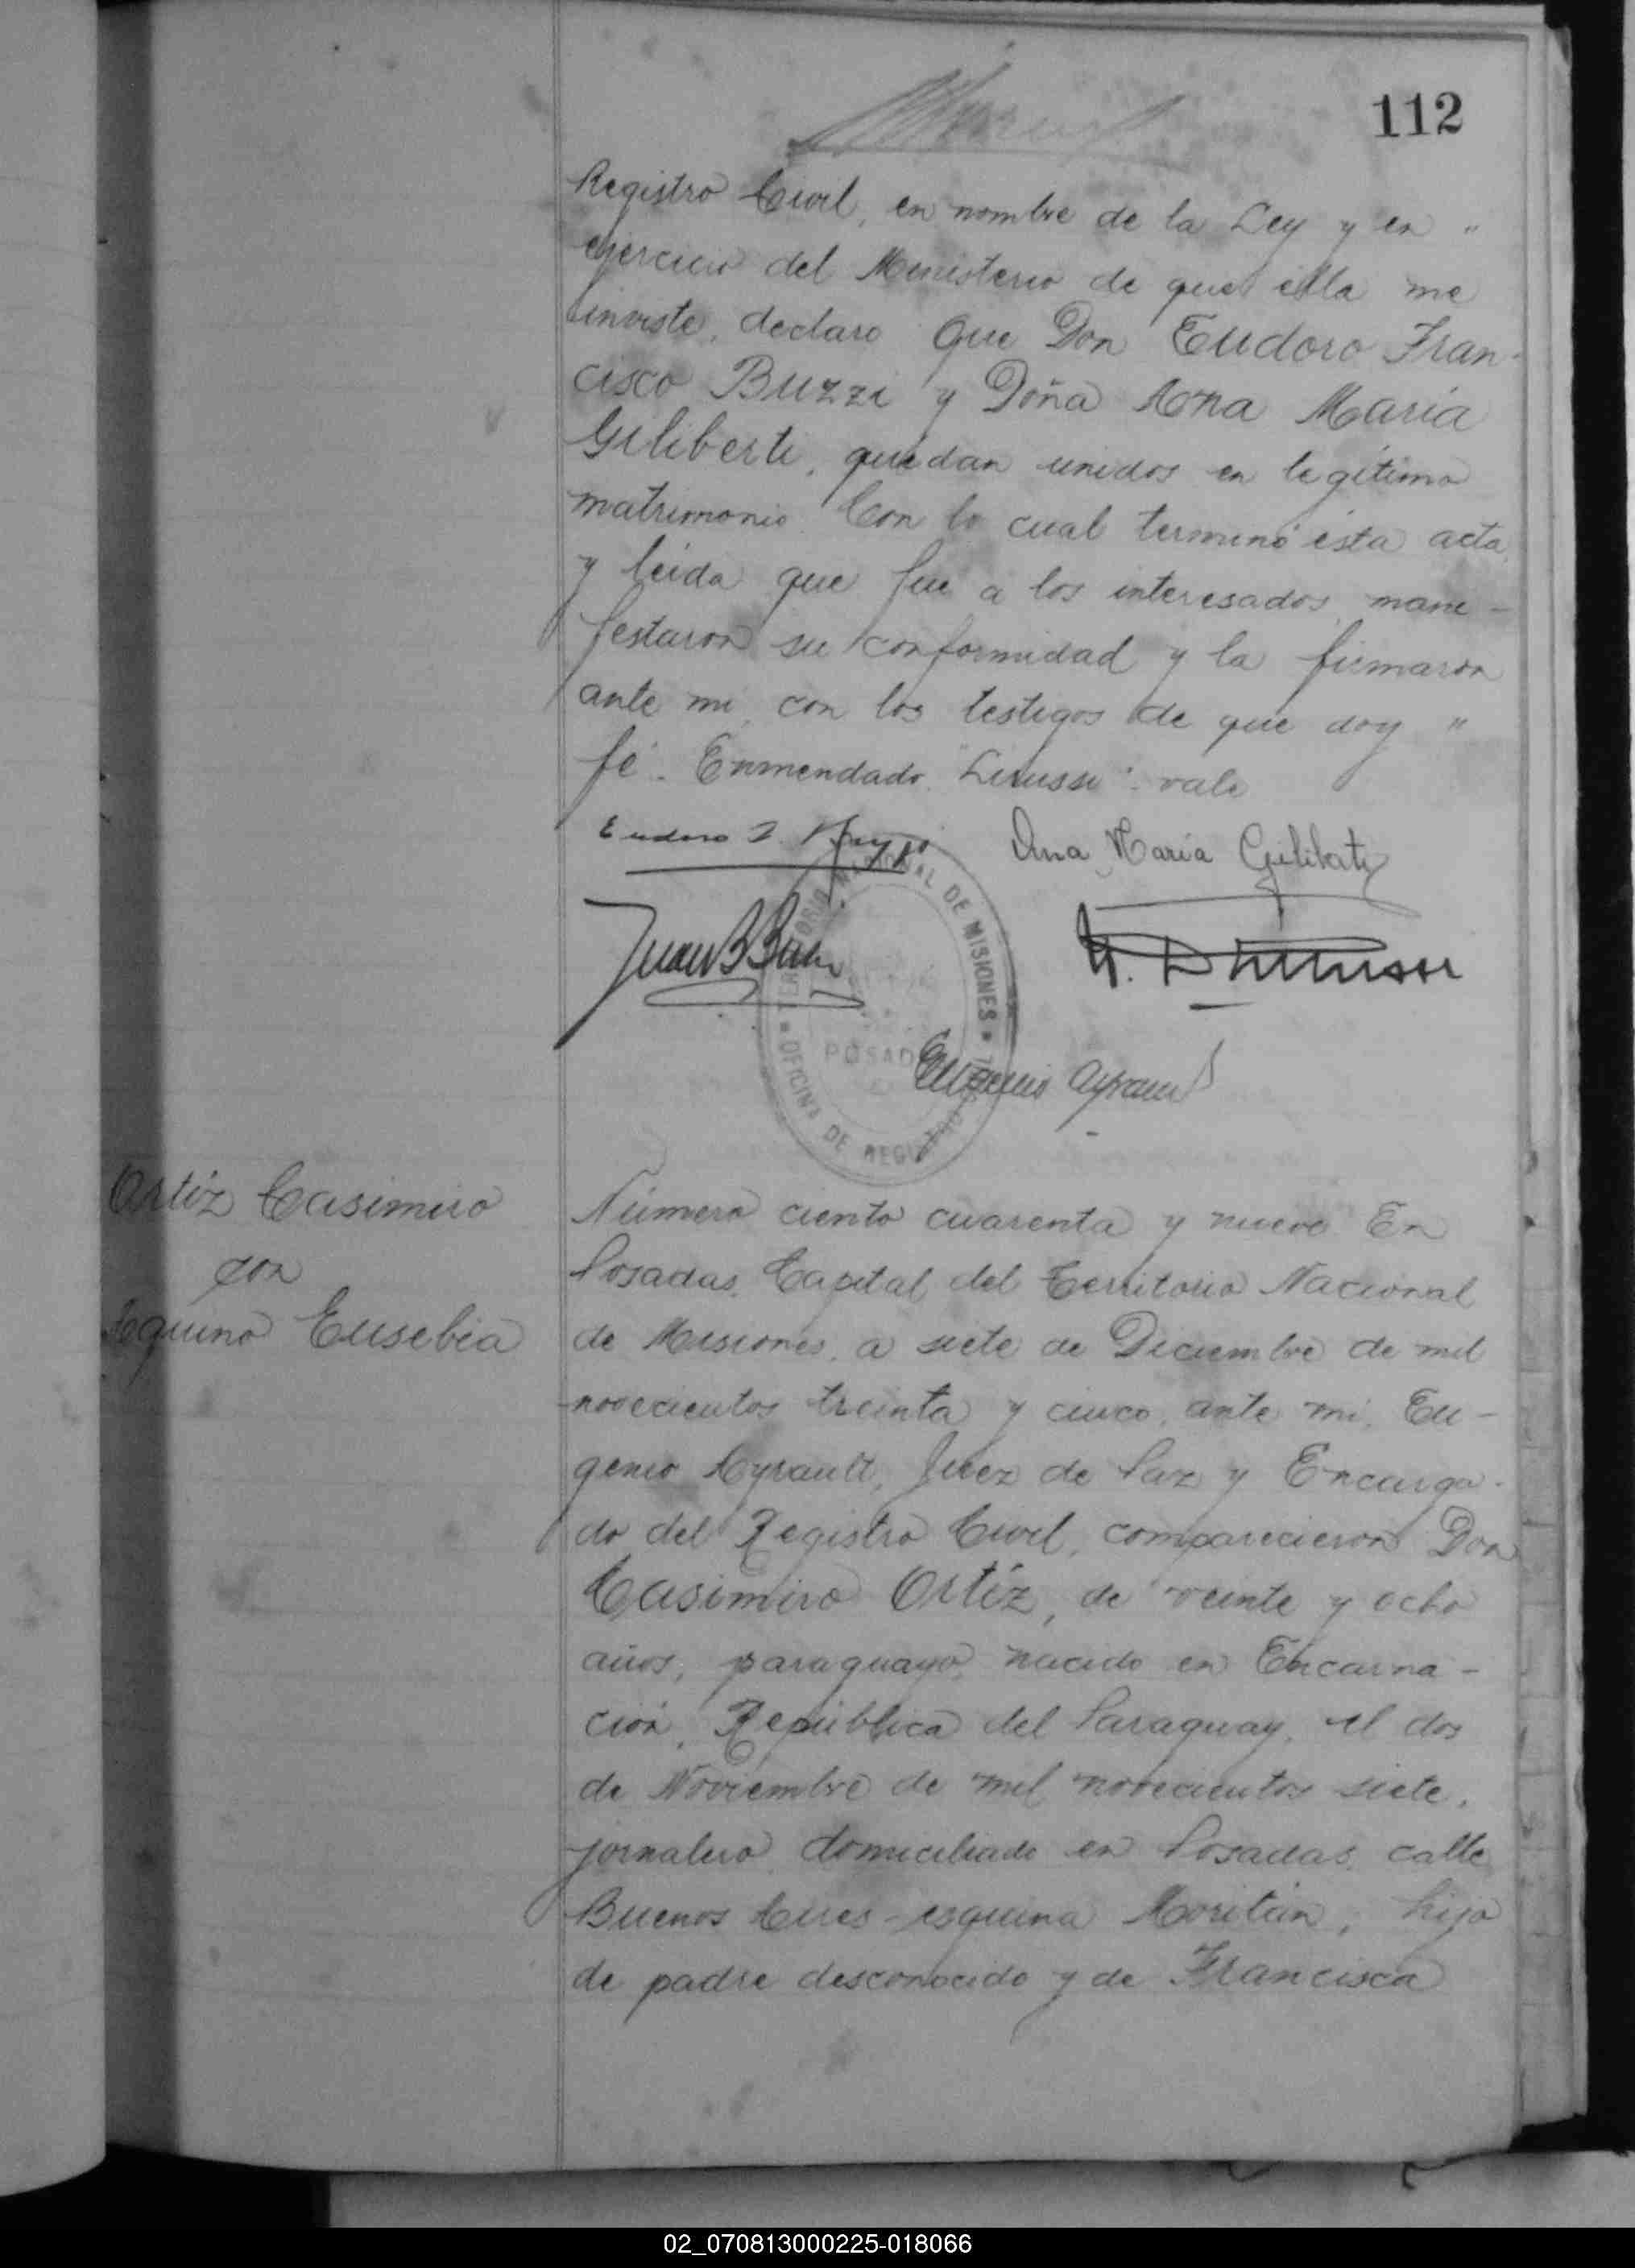 112
Registro Civil, en nombre de la Ley y en "
ejercicio del Ministerio de que ella me
inviste, declaro Que Don Eudoro Fran-
cisco Buzzi y Doña Ana Maria
Giliberti, quedan unidos en legítimo
matrimonio. Con lo cual terminó ésta acta,
y leida que fue a los interesados, mani-
festaron su conformidad y la firmaron
ante mi, con los testigos de que doy "
fé. Enmendado "Lirussi": vale
Eudoro F.
Ana Maria Giliberti
Juan B
TERRITORIO NACIONAL DE MISIONES
OFICINA DE REGISTRO
POSADAS
Eugenio Ayrault
Ortíz Casimiro
con
Aquino Eusebia
Número ciento cuarenta y nueve. En
Posadas, Capital del Territorio Nacional
de Misiones, a siete de Diciembre de mil
novecientos treinta y cinco, ante mi, Eu-
genio Ayrault, Juez de Paz y Encarga-
do del Registro Civil, comparecieron Don
Casimiro Ortíz, de veinte y ocho
años, paraguayo, nacido en Encarna-
ción, República del Paraguay, el dos
de Noviembre de mil novecientos siete,
jornalero domiciliado en Posadas, calle
Buenos Aires-esquina Moritán, hijo
de padre desconocido y de Francisca
02_070813000225-018066